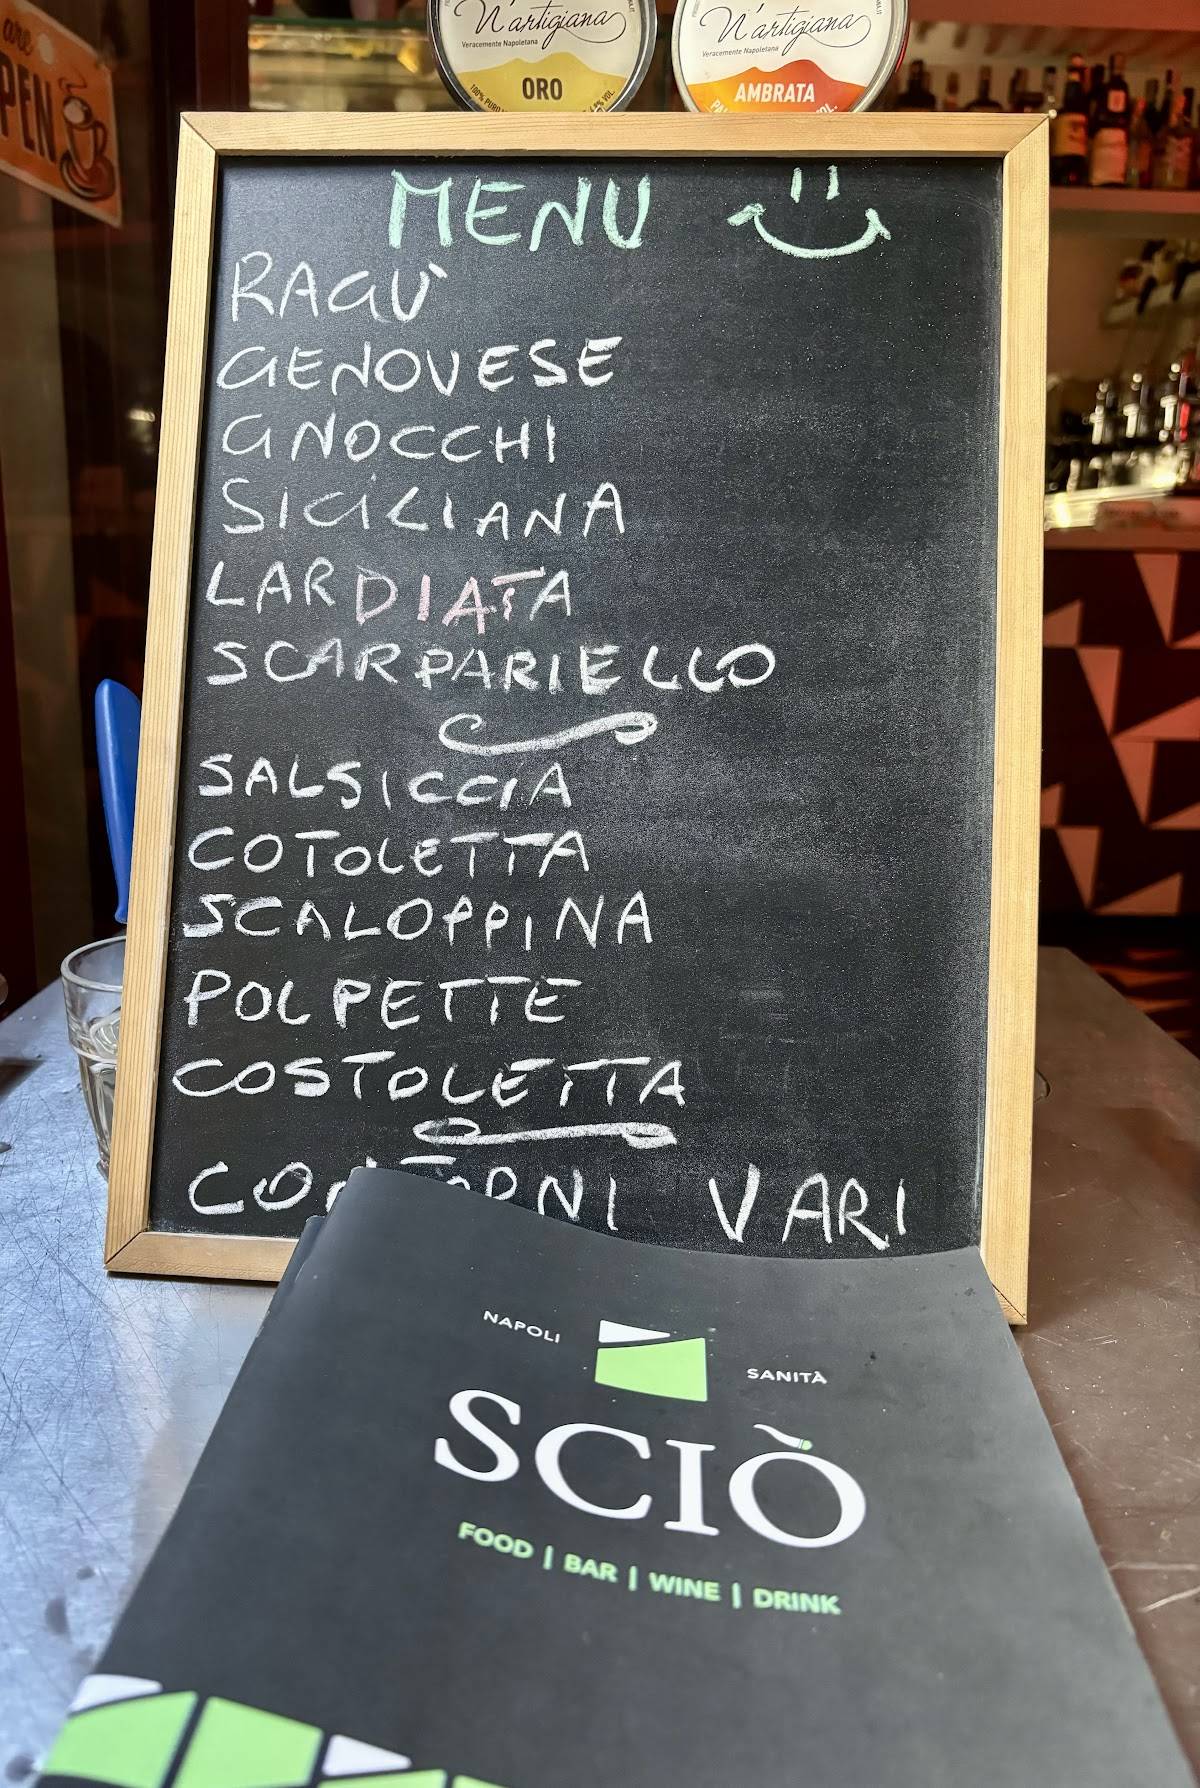 are
PEN
N'artigiana
Veracemente Napoletana
ORO
100% PURO
N'artigiana
Veracemente Napoletana
AMBRATA
MENU
RAGÙ
GENOVESE
GNOCCHI
SICILIANA
LARDIATA
SCARPARIELLO
SALSICCIA
COTOLETTA
SCALOPPINA
POLPETTE
COSTOLETTA
CONTORNI VARI
NAPOLI
SANITÀ
SCIÒ
FOOD | BAR | WINE | DRINK